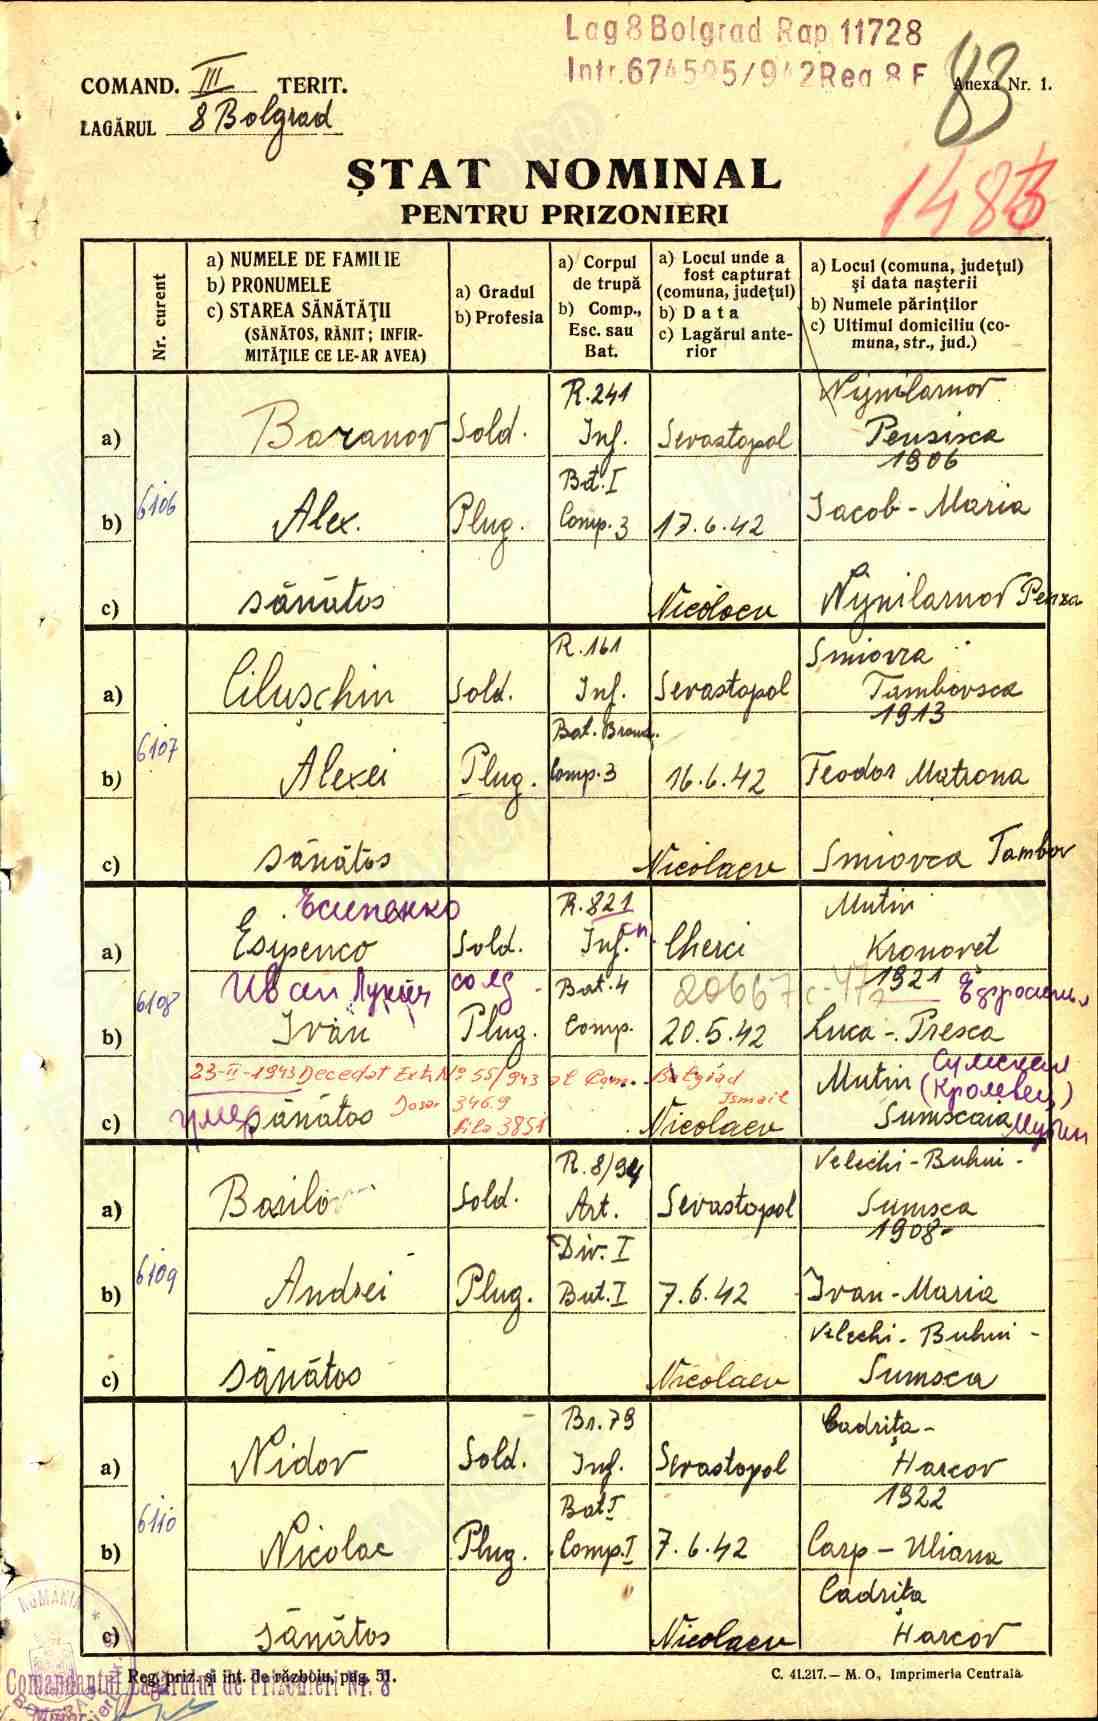 Lag 8 Bolgrad Rap 11728
Intr. 674595/942 Reg 8 F
COMAND. III TERIT.
83
Anexa Nr. 1.
LAGĂRUL 8 Bolgrad
ȘTAT NOMINAL
PENTRU PRIZONIERI
Nr. curent
a) NUMELE DE FAMILIE
b) PRONUMELE
c) STAREA SĂNĂTĂȚII
(SĂNĂTOS, RĂNIT; INFIR-
MITĂȚILE CE LE-AR AVEA)
a) Gradul
b) Profesia
a) Corpul
de trupă
b) Comp.,
Esc. sau
Bat.
a) Locul unde a
fost capturat
(comuna, județul)
b) Data
c) Lagărul ante-
rior
a) Locul (comuna, județul)
și data nașterii
b) Numele părinților
c) Ultimul domiciliu (co-
muna, str., jud.)
6106
a) Baranov Sold. R. 241 Inf. Sevastopol Nijnilarnov
Pensisca
1906
b) Alex. Plug. Bat. I Comp. 3 17.6.42 Iacob - Maria
c) sănătos Nicolaev Nijnilarnov Penza
6107
a) Ciluschin Sold. R. 161 Inf. Sevastopol Smiovca
Tambovsca
1913
b) Alexei Plug. Comp. 3 16.6.42 Teodor Matrona
c) sănătos Nicolaev Smiovca Tambov
6108
Есипенко
a) Esypenco Sold. R. 821 Inf. Cherci Mutin
Kronovet
1921
Иван Лукич солд. Bat. 4 20667
b) Ivan Plug. Comp. 20.5.42 Luca - Presca
23-II-1943 Decedat Ext. No 55/943 al Com. Bolgrad
Ismail
Dosar 3469
Fila 3851
Mutin Сумская
(Кролевец)
c) умер sănătos Nicolaev Sumscaia Мутин
6109
a) Barilo Sold. R. 8/94 Art. Sevastopol Velechi - Buhni -
Sumsca
1908
b) Andrei Plug. Div. I But. I 7.6.42 Ivan - Maria
c) sănătos Nicolaev Velechi - Buhni -
Sumsca
6110
a) Nidov Sold. Br. 79 Inf. Sevastopol Cadrița -
Harcov
1922
b) Nicolae Plug. Bat I Comp. I 7.6.42 Carp - Uliana
c) sănătos Nicolaev Cadrița
Harcov
ROMÂNIA
Reg. priz. și int. de război, pag. 51.
C. 41.217. — M. O., Imprimeria Centrală
Comandantul Lagărului de Prizonieri Nr. 8